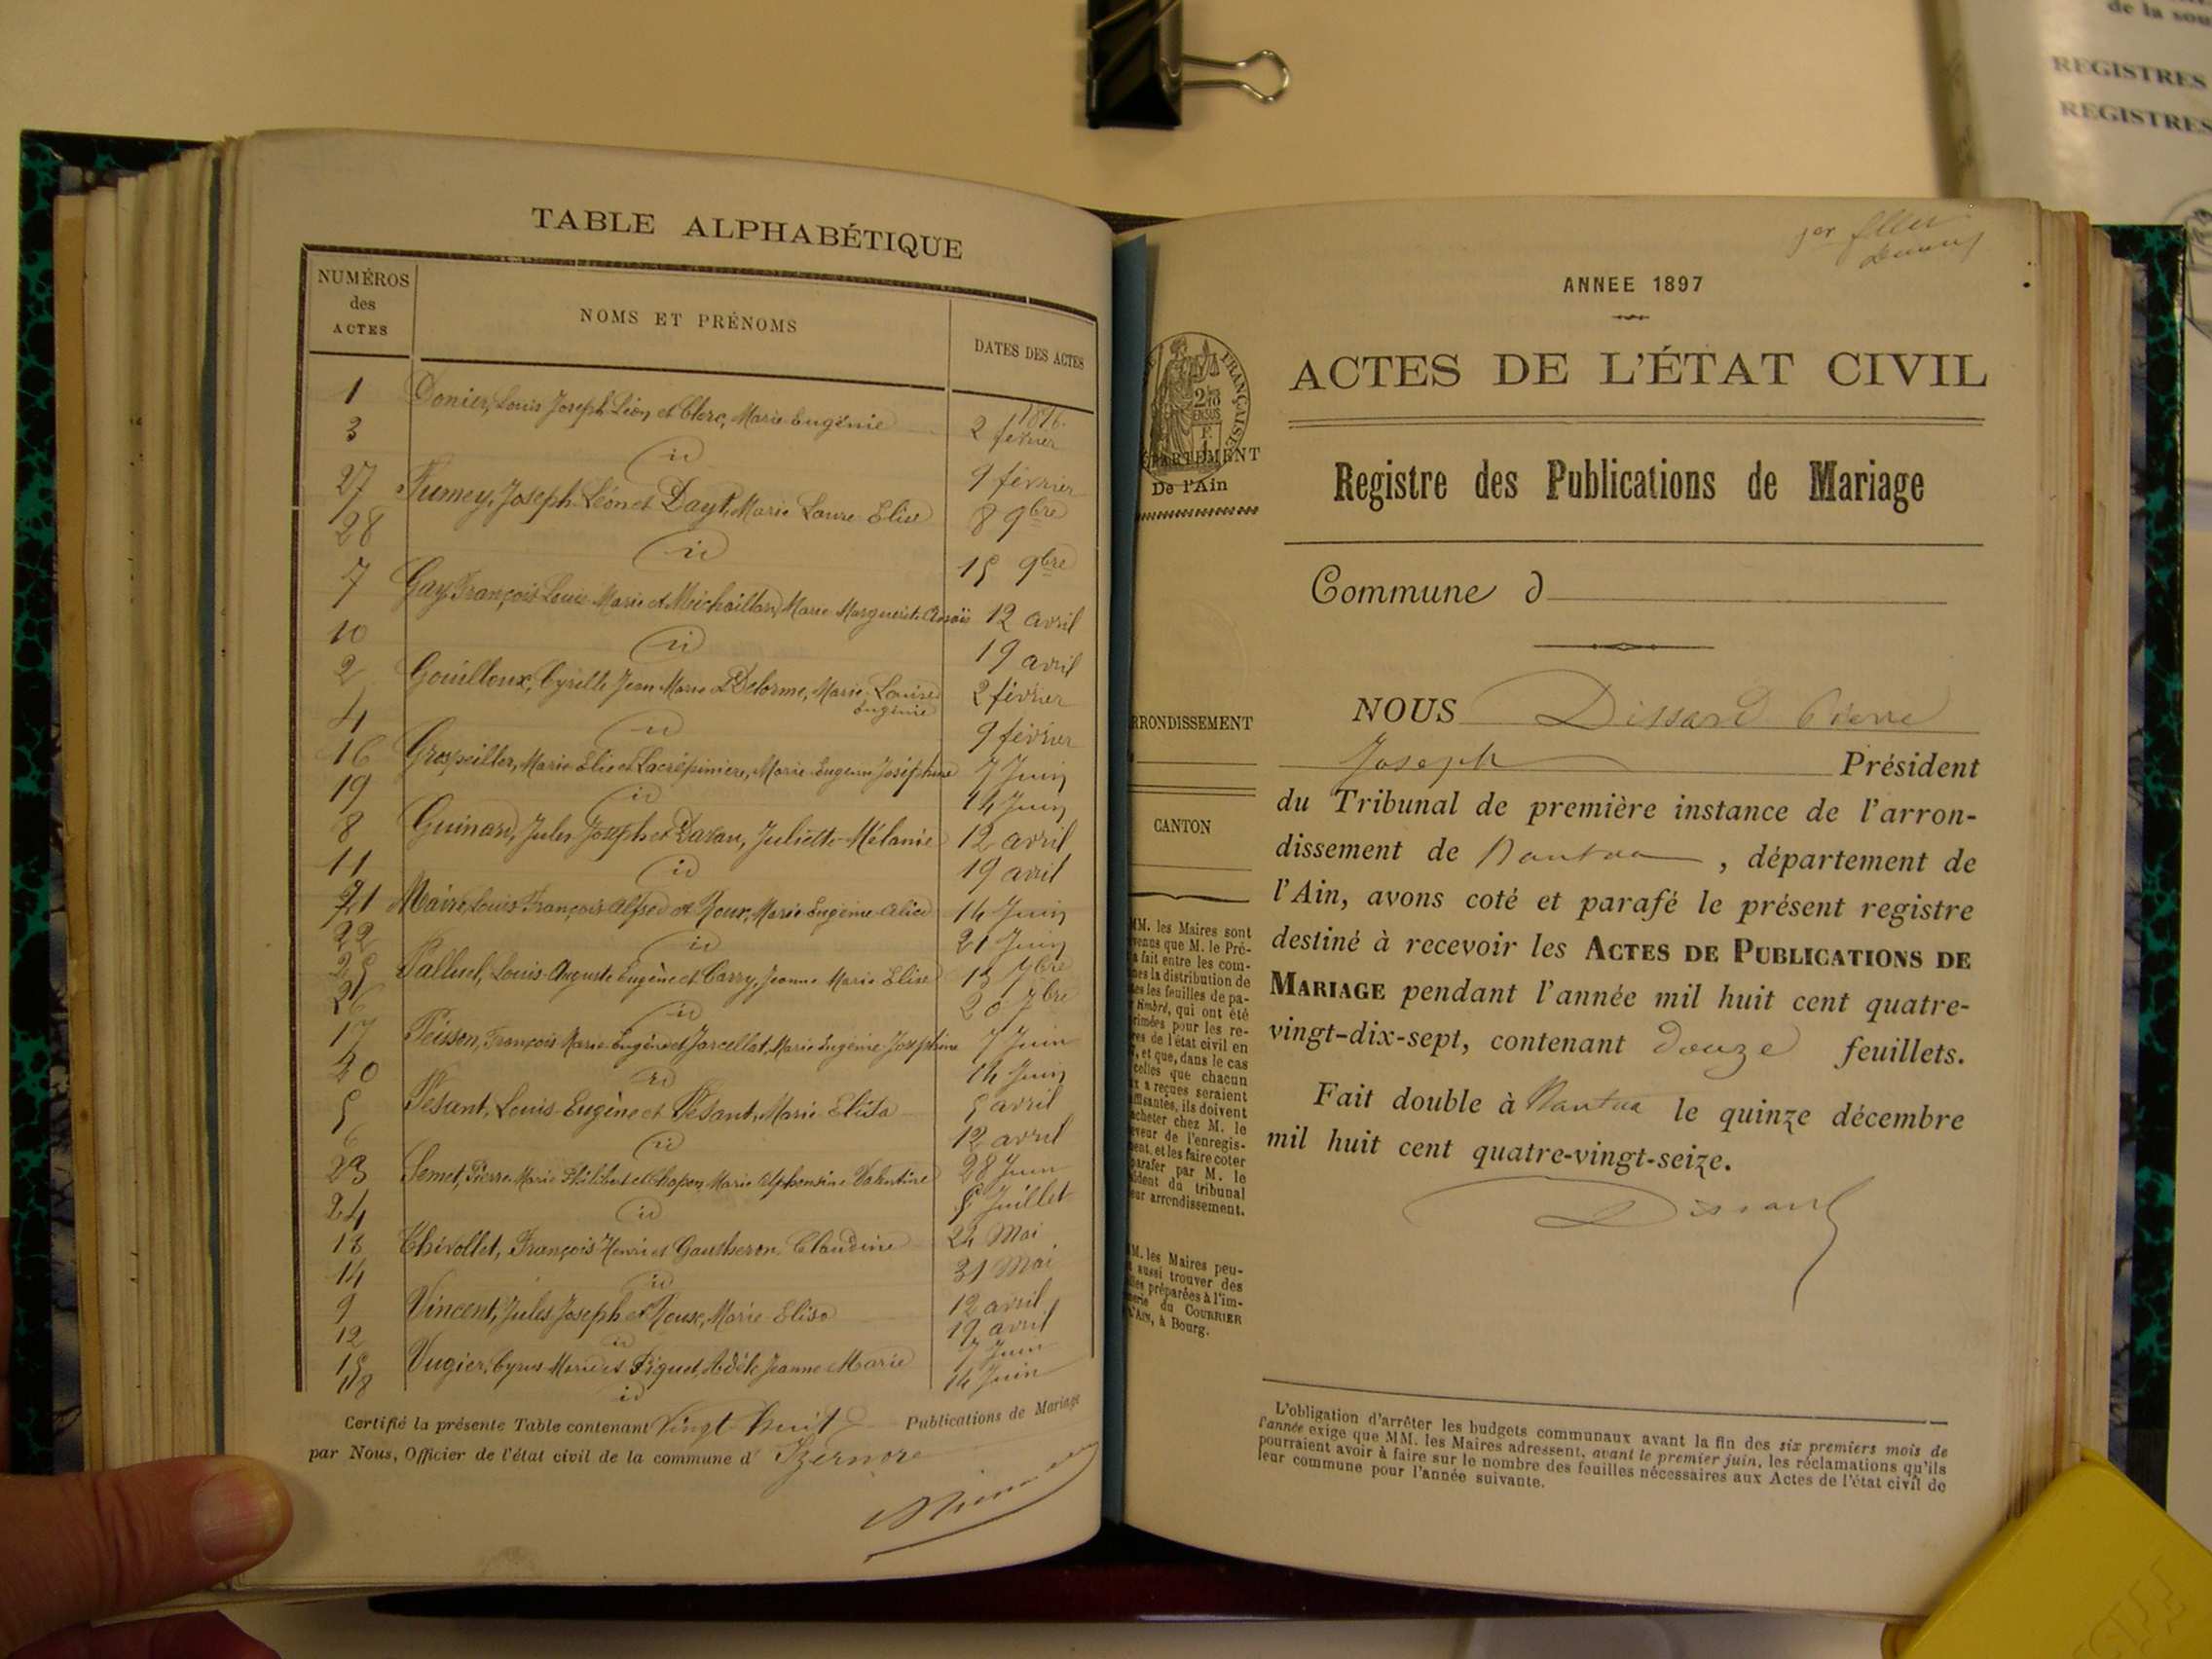 TABLE ALPHABÉTIQUE
NUMÉROS des ACTES
NOMS ET PRÉNOMS
DATES DES ACTES
1 Donier, Louis Joseph Léon et Clerc, Marie Eugénie 2 février 1896
3 id 9 février
27 Joseph Léon et Dayt, Marie Laure Elise 8 9bre
28 id 15 9bre
7 Gay, François Louis Marie et Michaillard Marie Marguerite 12 avril
10 id 19 avril
2 Gouilloux, Cyrille Jean Marie et Delorme, Marie Louise Eugénie 2 février
4 id 9 février
16 Grospeiller, Marie Elie et Lacrépinière, Marie Joséphine 7 Juin
19 id 14 Juin
8 Guinard, Jules Joseph et Juliette Mélanie 12 avril
11 id 19 avril
21 Maire, Louis François Alfred et Roux, Marie Eugénie Alice 14 Juin
22 id 21 Juin
25 Palluel, Louis Auguste Eugène et Carry, Jeanne Marie Elise 13 7bre
26 id 20 7bre
17 Peisson, François Marie Eugène et Marie Eugénie Joséphine 7 Juin
20 id 14 Juin
5 Pésant, Louis Eugène et Pésant, Marie Elisa 5 avril
6 id 12 avril
23 Semet, Pierre Marie Philibert et Chapon, Marie Alphonsine Valentine 28 Juin
24 id 5 Juillet
13 Thévollet, François Henri et Gautheron Claudine 24 Mai
14 id 31 Mai
9 Vincent, Jules Joseph et Roux, Marie Elisa 12 avril
12 id 19 avril
15 Vugier, Cyrus Marie et Piquet, Adèle Jeanne Marie 7 Juin
18 id 14 Juin
Certifié la présente Table contenant Vingt huit Publications de Mariage
par Nous, Officier de l'état civil de la commune d' Izernore
1er
ANNEE 1897
ACTES DE L'ÉTAT CIVIL
Registre des Publications de Mariage
Commune d
NOUS Dissard Pierre
Joseph Président
du Tribunal de première instance de l'arron-
dissement de Nantua, département de
l'Ain, avons coté et parafé le présent registre
destiné à recevoir les ACTES DE PUBLICATIONS DE
MARIAGE pendant l'année mil huit cent quatre-
vingt-dix-sept, contenant douze feuillets.
Fait double à Nantua le quinze décembre
mil huit cent quatre-vingt-seize.
Dissard
L'obligation d'arrêter les budgets communaux avant la fin des six premiers mois de
l'année exige que MM. les Maires adressent, avant le premier juin, les réclamations qu'ils
pourraient avoir à faire sur le nombre des feuilles nécessaires aux Actes de l'état civil de
leur commune pour l'année suivante.
FRANÇAISE
De l'Ain
CANTON
MM. les Maires sont
que M. le Pré-
fait entre les com-
la distribution de
les feuilles de pa-
timbré, qui ont été
pour les re-
de l'état civil en
et que, dans le cas
celles que chacun
a reçues seraient
ils doivent
acheter chez M. le
de l'enregis-
et les faire coter
parafer par M. le
du tribunal
arrondissement.
les Maires peu-
aussi trouver des
préparées à l'im-
du COURRIER
à Bourg.
de la
REGISTRES
REGISTRES